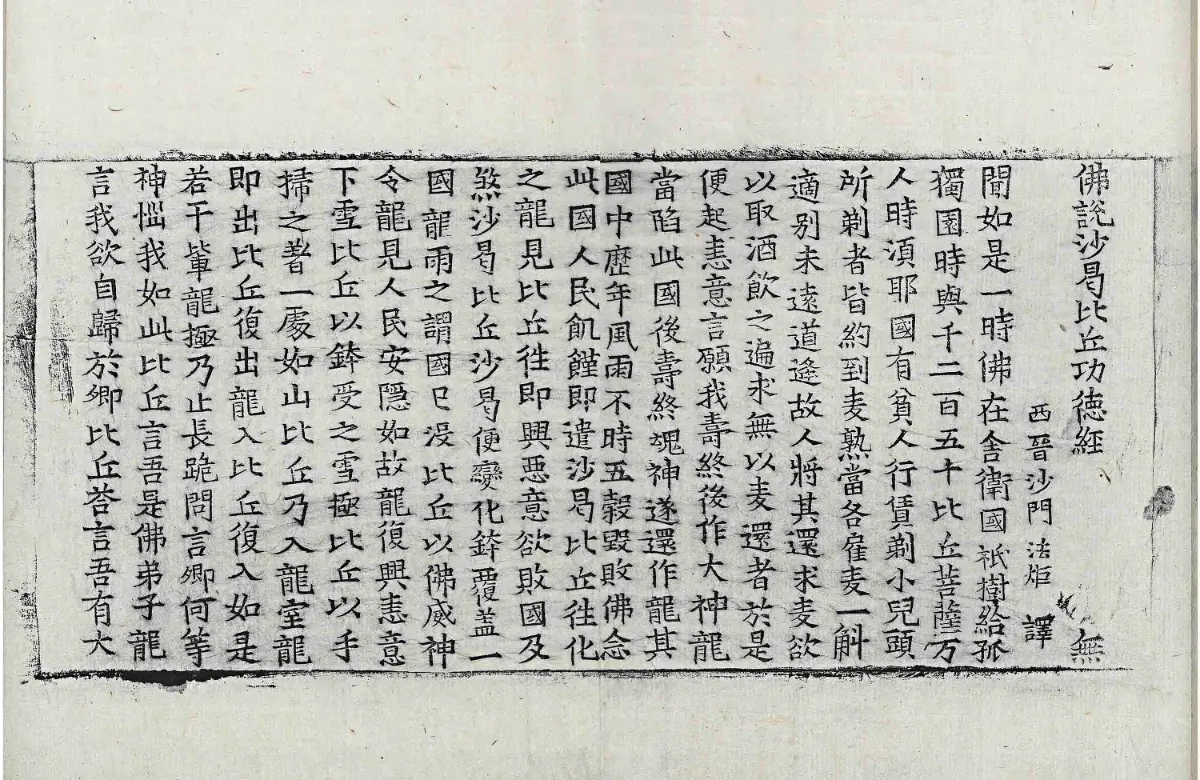 佛說沙曷比丘功德經 無
西晉沙門法炬 譯
聞如是一時佛在舍衛國祇樹給孤
獨園時與千二百五十比丘菩薩万
人時須耶國有貧人行賃剃小兒頭
所剃者皆約到麦熟當各雇麦一斛
適別未遠道逢故人將其還求麦欲
以取酒飲之遍求無以麦還者於是
便起恚意言願我壽終後作大神龍
當陷此國後壽終魂神遂還作龍其
國中歷年風雨不時五糓毀敗佛念
此國人民飢饉即遣沙曷比丘往化
之龍見比丘往即興惡意欲敗國及
煞沙曷比丘沙曷便變化鉢覆盖一
國龍雨之謂國已没比丘以佛威神
令龍見人民安隱如故龍復興恚意
下雪比丘以鉢受之雪極比丘以手
掃之著一處如山比丘乃入龍室龍
即出比丘復出龍入比丘復入如是
若干軰龍極乃止長跪問言卿何等
神惱我如此比丘言吾是佛弟子龍
言我欲自歸於卿比丘荅言吾有大